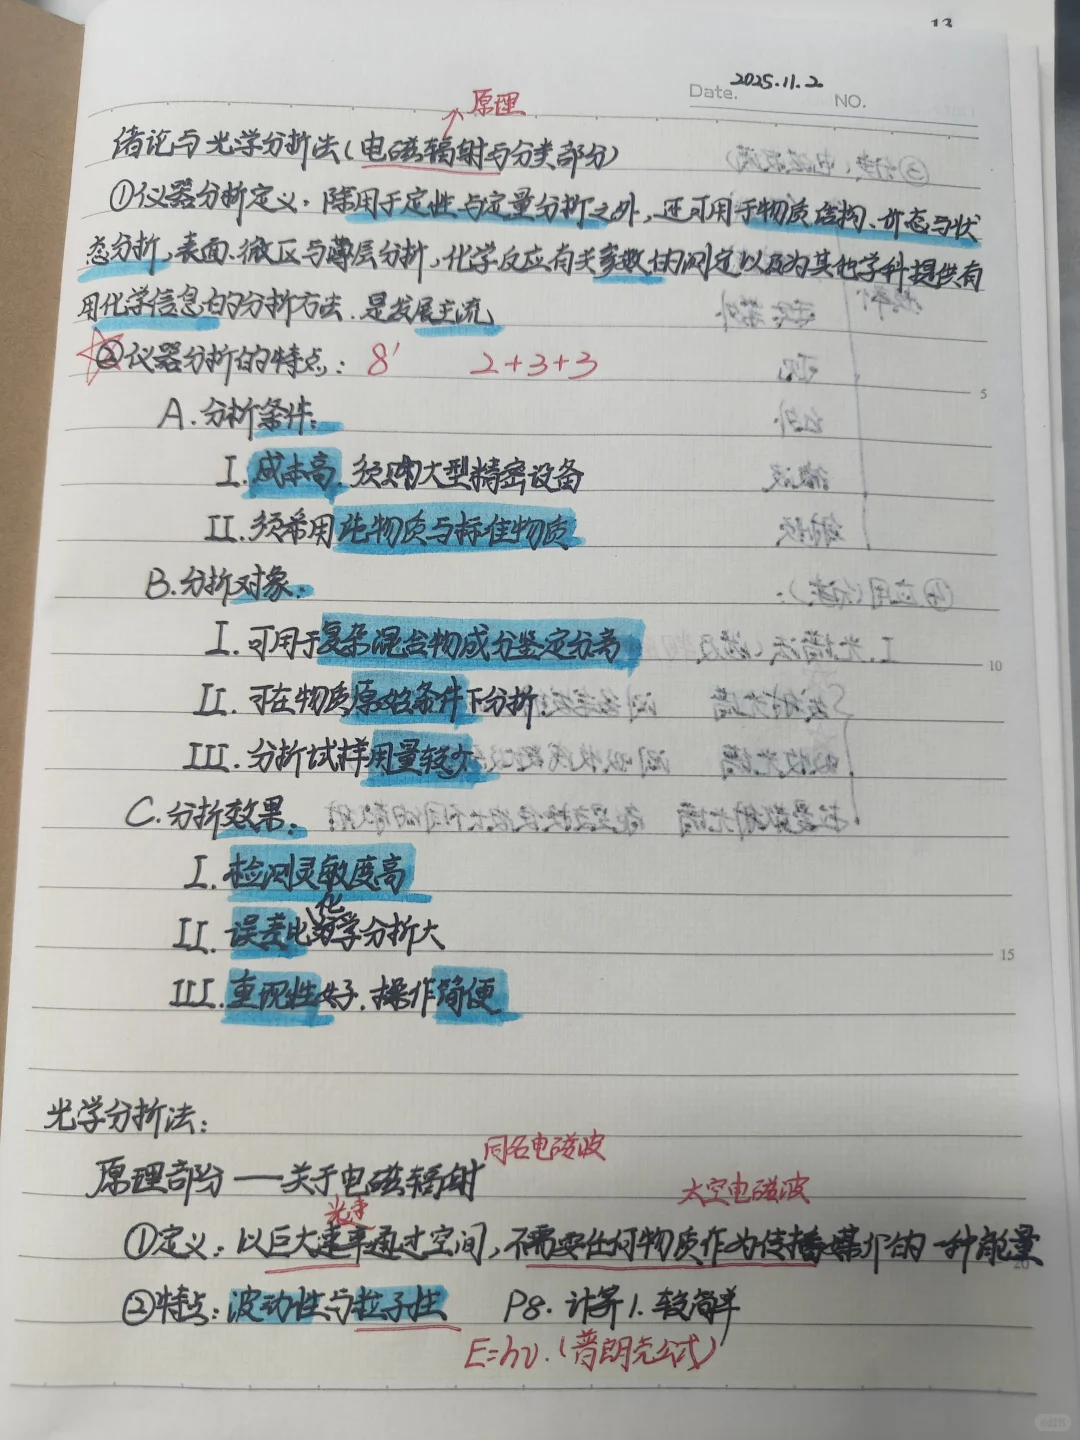 13
Date. 2025.11.2 NO.
原理
绪论与光学分析法(电磁辐射与分类部分)
①仪器分析定义:除用于定性与定量分析之外,还可用于物质结构、价态与状
态分析,表面、微区与薄层分析,化学反应有关参数的测定以及为其他学科提供有
用化学信息的分析方法.是发展主流
②仪器分析的特点: 8' 2+3+3
5
A.分析条件:
I.成本高.须购大型精密设备
II.须希用纯物质与标准物质
B.分析对象:
I.可用于复杂混合物成分鉴定分离
10
II.可在物质原始条件下分析.
III.分析试样用量较少
C.分析效果:
I.检测灵敏度高
化
II.误差比学分析大
15
III.重现性好.操作简便
光学分析法:
同名电磁波
原理部分——关于电磁辐射
太空电磁波
光
①定义:以巨大速率通过空间,不需要任何物质作为传播媒介的一种能量
20
②特点:波动性与粒子性 P8.计算1.较简单
E=hν.(普朗克公式)